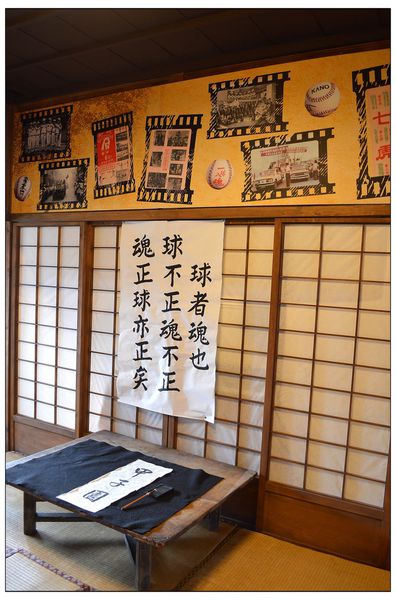 KANO
球者魂也
球不正魂不正
魂正球亦正矣
甲子園